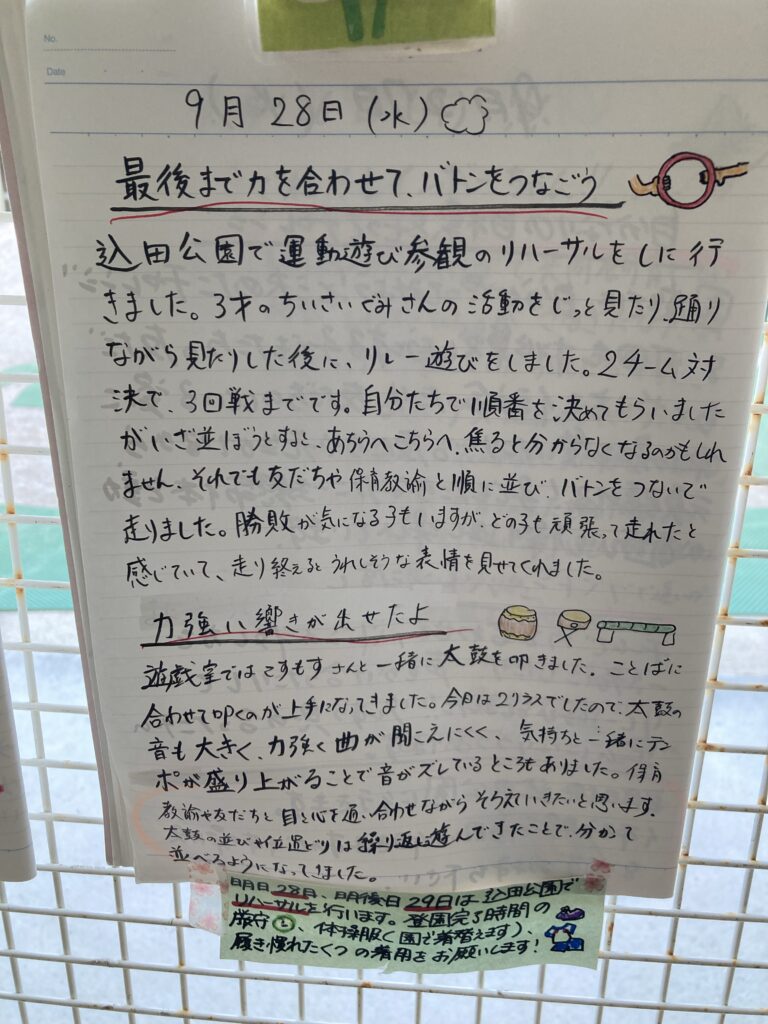 No.
Date
9月28日(水)
最後まで力を合わせて、バトンをつなごう
込田公園で運動遊び参観のリハーサルをしに行
きました。3才のちいさいぐみさんの活動をじっと見たり、踊り
ながら見たりした後に、リレー遊びをしました。2チーム対
決で、3回戦までです。自分たちで順番を決めてもらいました
がいざ並ぼうとすると、あちらへこちらへ、焦ると分からなくなるのかもしれ
ません。それでも友だちや保育教諭と順に並び、バトンをつないで
走りました。勝敗が気になる子もいますが、どの子も頑張って走れたと
感じていて、走り終えるとうれしそうな表情を見せてくれました。
力強い響きが出せたよ
遊戯室ではこすもすさんと一緒に太鼓を叩きました。ことばに
合わせて叩くのが上手になってきました。今日は2クラスでしたので、太鼓の
音も大きく、力強く曲が聞こえにくく、気持ちと一緒にテン
ポが盛り上がることで音がズレているところもありました。保育
教諭や友だちと目と心を通い合わせながらそろえていきたいと思います。
太鼓の並びや位置どりは繰り返し遊んできたことで、分かって
並べるようになってきました。
明日28日、明後日29日は込田公園で
リハーサルを行います。登園完了時間の
厳守、体操服(園で着替えます)、
履き慣れたくつの着用をお願いします!